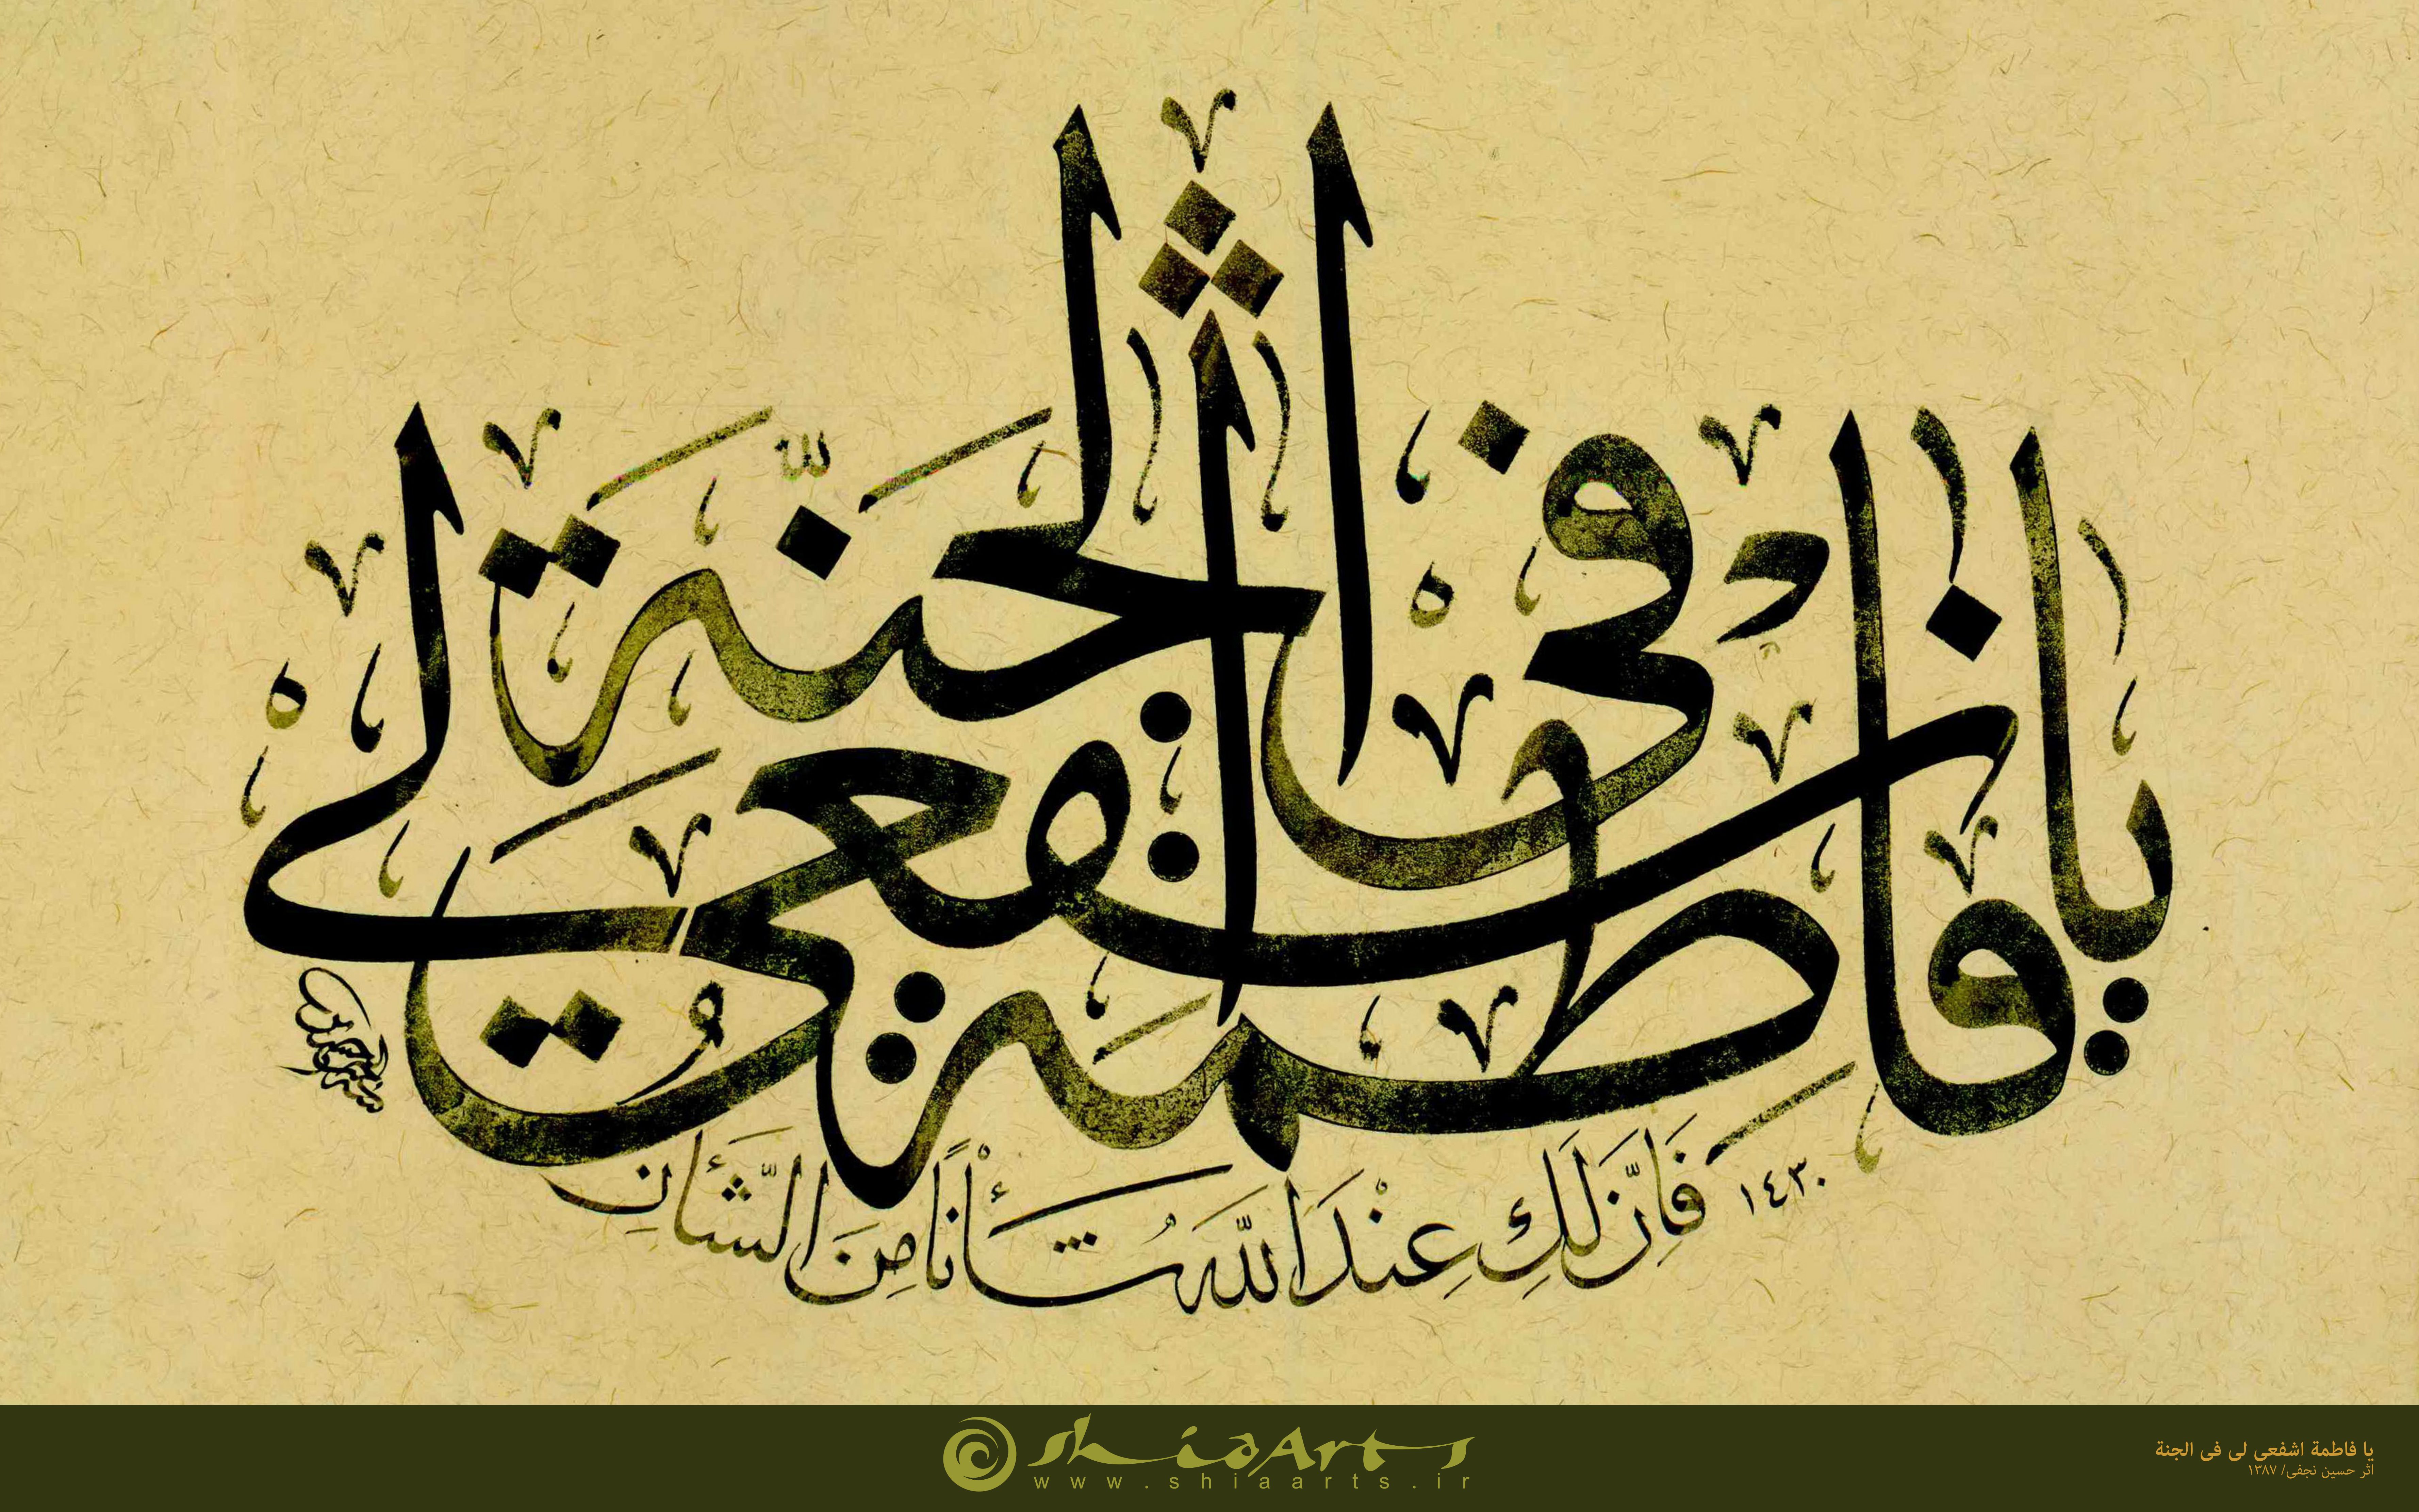 يا فاطمة اشفعي لي في الجنة
فَاِنَّ لَكِ عِنْدَ اللهِ شَأْنًا مِنَ الشَّأنِ
١٤٣٠
shiaArts
www.shiaarts.ir
يا فاطمة اشفعی لی فی الجنة
اثر حسین نجفی/ ۱۳۸۷